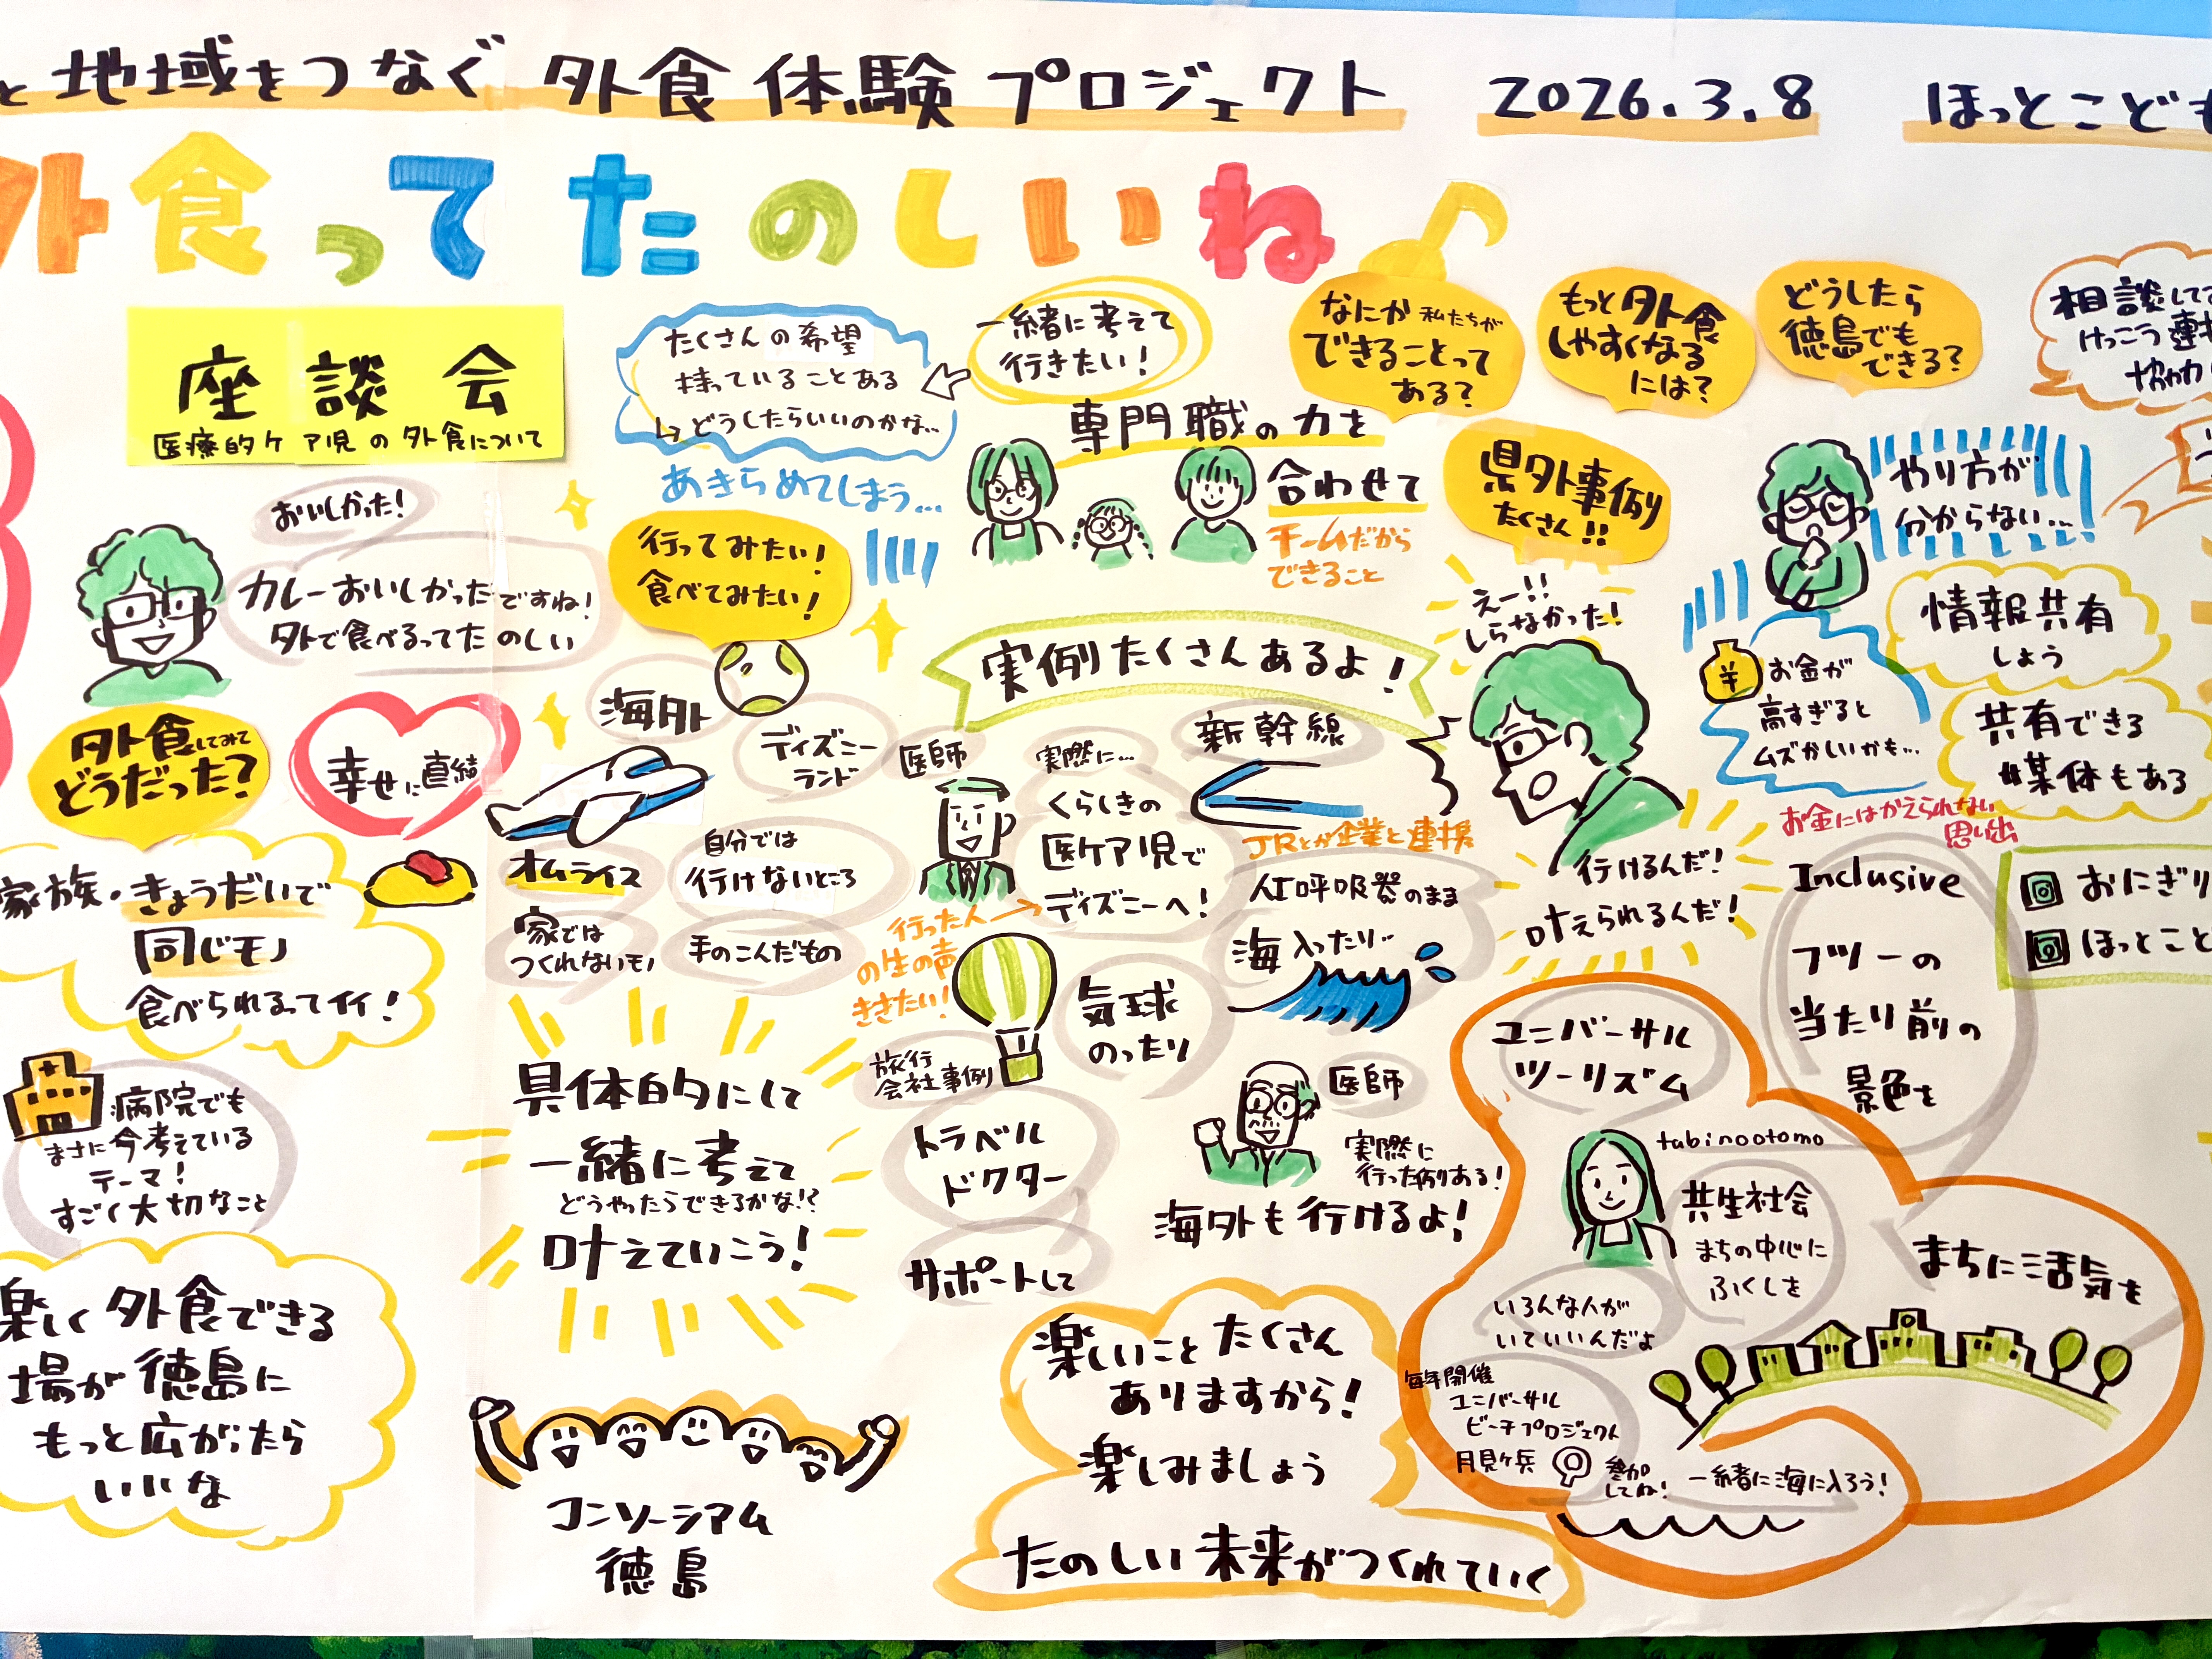 と地域をつなぐ 外食体験プロジェクト 2026.3.8 ほっとこども
外食ってたのしいね♪
座談会
医療的ケア児の外食について
おいしかった!
カレーおいしかったですね!
外で食べるってたのしい
外食してみて
どうだった?
幸せに直結
家族・きょうだいで
同じモノ
食べられるってイイ!
病院でも
まさに今考えている
テーマ!
すごく大切なこと
楽しく外食できる
場が徳島に
もっと広がったら
いいな
たくさんの希望
持っていることある
↳どうしたらいいのかな…
あきらめてしまう…
行ってみたい!
食べてみたい!
海外
ディズニー
ランド
オムライス
自分では
行けないところ
家では
つくれないモノ
手のこんだもの
具体的にして
一緒に考えて
どうやったらできるかな!?
叶えていこう!
コンソーシアム
徳島
一緒に考えて
行きたい!
専門職の力を
合わせて
チームだから
できること
実例たくさんあるよ!
医師
実際に…
くらしきの
医ケア児で
ディズニーへ!
行った人→
の生の声
ききたい!
新幹線
JRとか企業と連携
人工呼吸器のまま
海入ったり…
気球
のったり
旅行
会社事例
トラベル
ドクター
サポートして
医師
実際に
行った例ある!
海外も行けるよ!
楽しいことたくさん
ありますから!
楽しみましょう
たのしい未来がつくれていく
なにか私たちが
できることって
ある?
もっと外食
しやすくなる
には?
どうしたら
徳島でも
できる?
県外事例
たくさん!!
えー!!
しらなかった!
行けるんだ!
叶えられるんだ!
相談して
けっこう連携
協力
やり方が
分からない…
情報共有
しよう
¥
お金が
高すぎると
ムズかしいかも…
共有できる
媒体もある
お金にはかえられない
思い出
Inclusive
フツーの
当たり前の
景色を
おにぎり
ほっとこと
ユニバーサル
ツーリズム
tabinootomo
共生社会
まちの中心に
ふくしを
いろんな人が
いていいんだよ
まちに活気を
毎年開催
ユニバーサル
ビーチプロジェクト
月見ヶ丘
参加
してね!
一緒に海に入ろう!